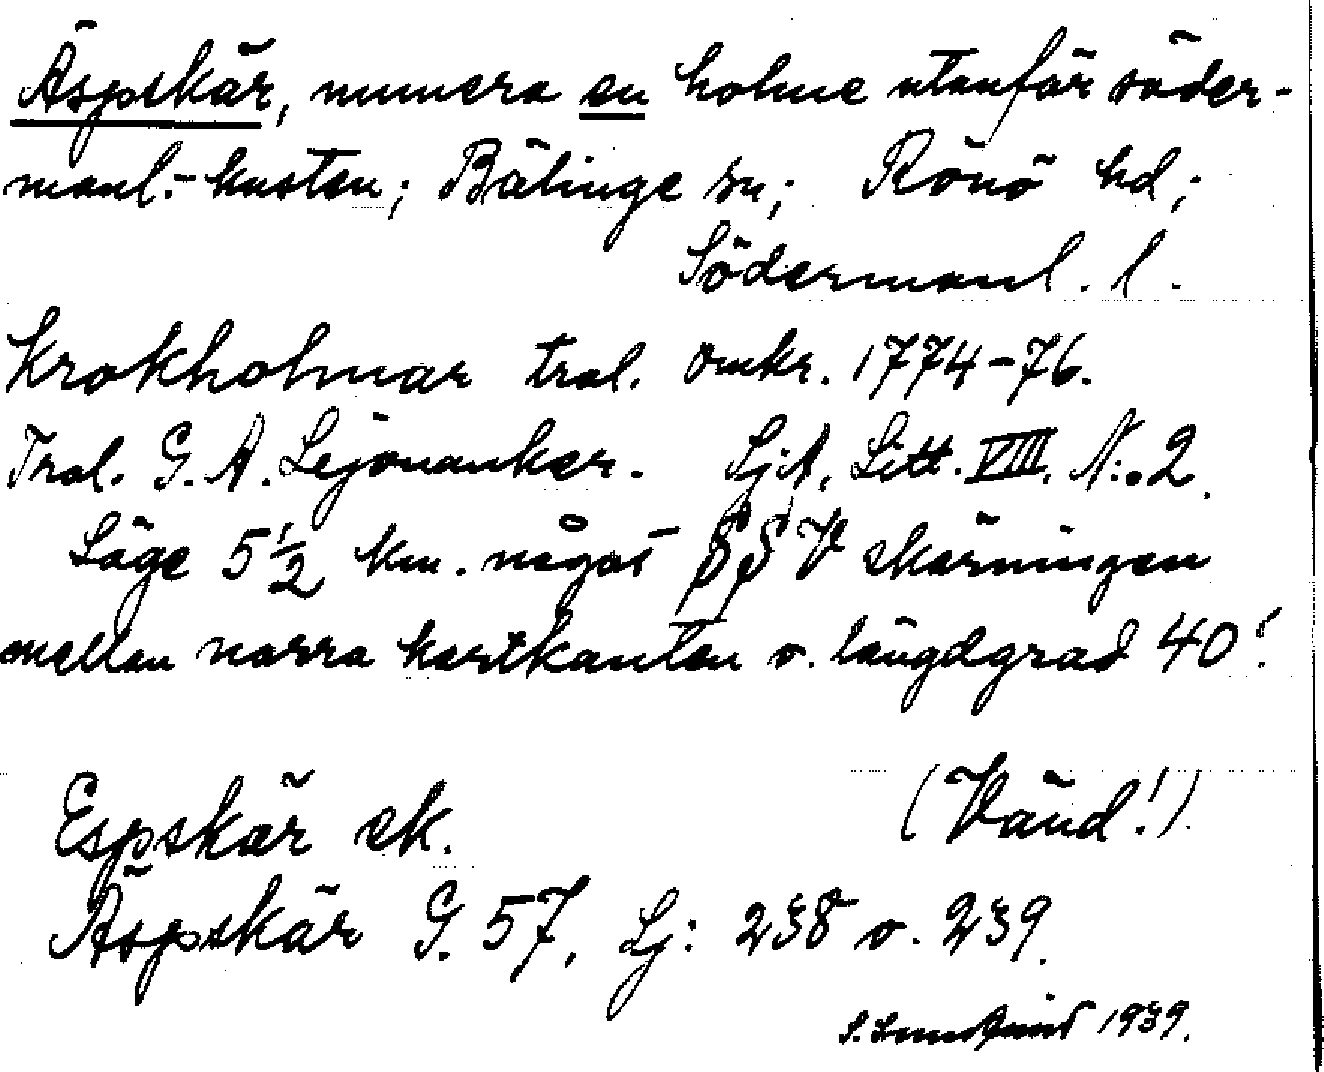 Äspskär, numera en holme utanför söder-
manl.-kusten; Bälinge sn; Rönö hd;
Södermanl. l.
Krokholmar tral. omkr. 1774-76.
Tral. G. A. Lejonanker. Sj.A. Litt. VIII. N:o 2.
Läge 5½ km. något SSV skärningen
mellan norra kartkanten o. längdgrad 40'.
Espskär sk.
(Vänd!)
Äspskär G. 57, Lj: 238 o. 239.
1939.